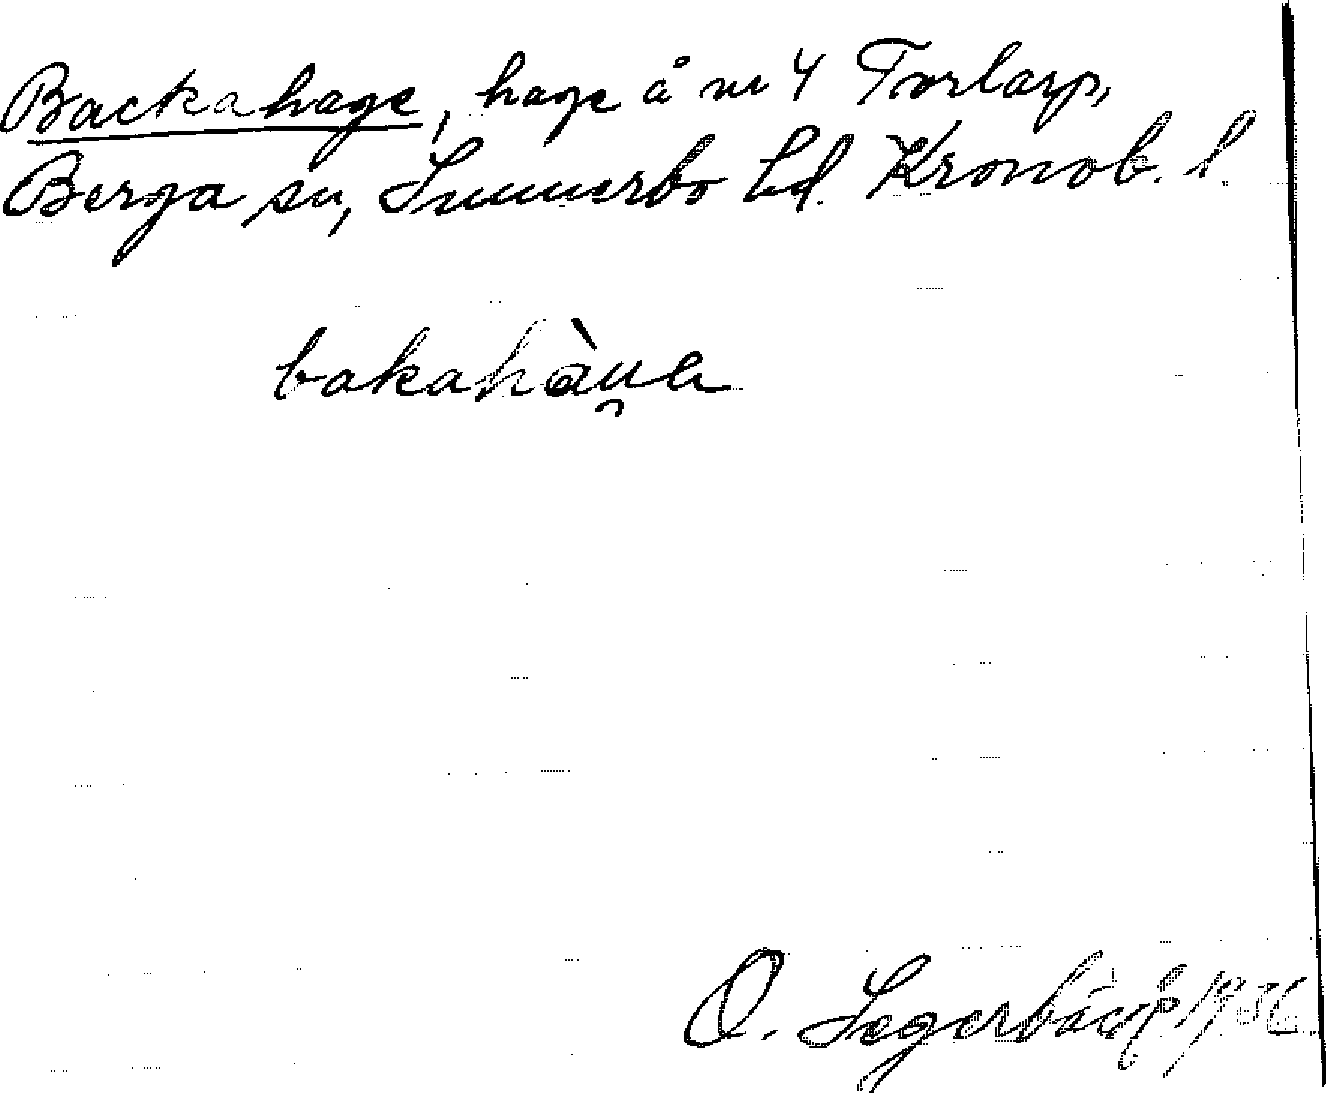 Backahage, hage å nr 4 Torlarp,
Berga sn, Sunnerbo hd. Kronob. l.
bakahàu̯a
O. Segerbäck 1936